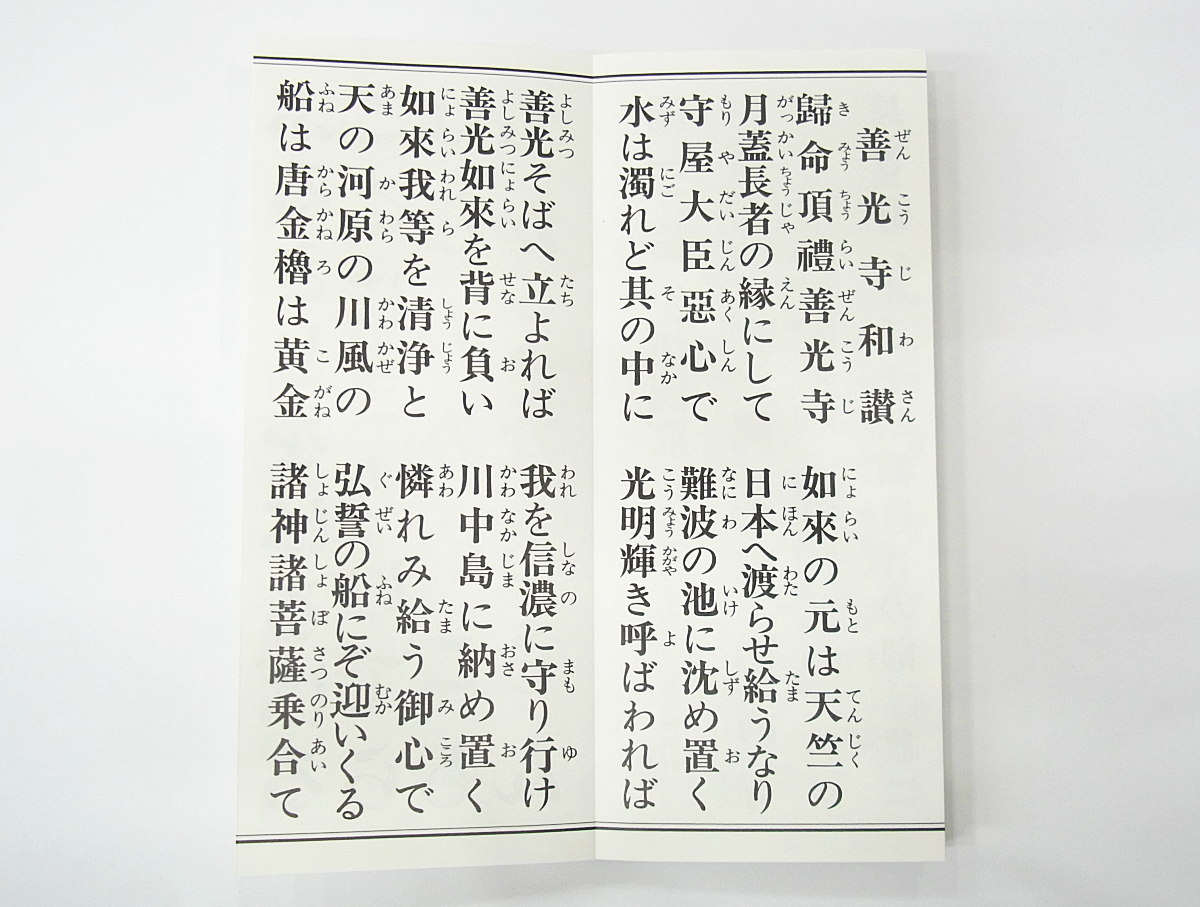 善光寺和讃
歸命頂禮善光寺
如來の元は天竺の
月蓋長者の縁にして
日本へ渡らせ給うなり
守屋大臣惡心で
難波の池に沈め置く
水は濁れど其の中に
光明輝き呼ばわれば
善光そばへ立よれば
我を信濃に守り行け
善光如來を背に負い
川中島に納め置く
如來我等を清浄と
憐れみ給う御心で
天の河原の川風の
弘誓の船にぞ迎いくる
船は唐金櫓は黄金
諸神諸菩薩乗合て